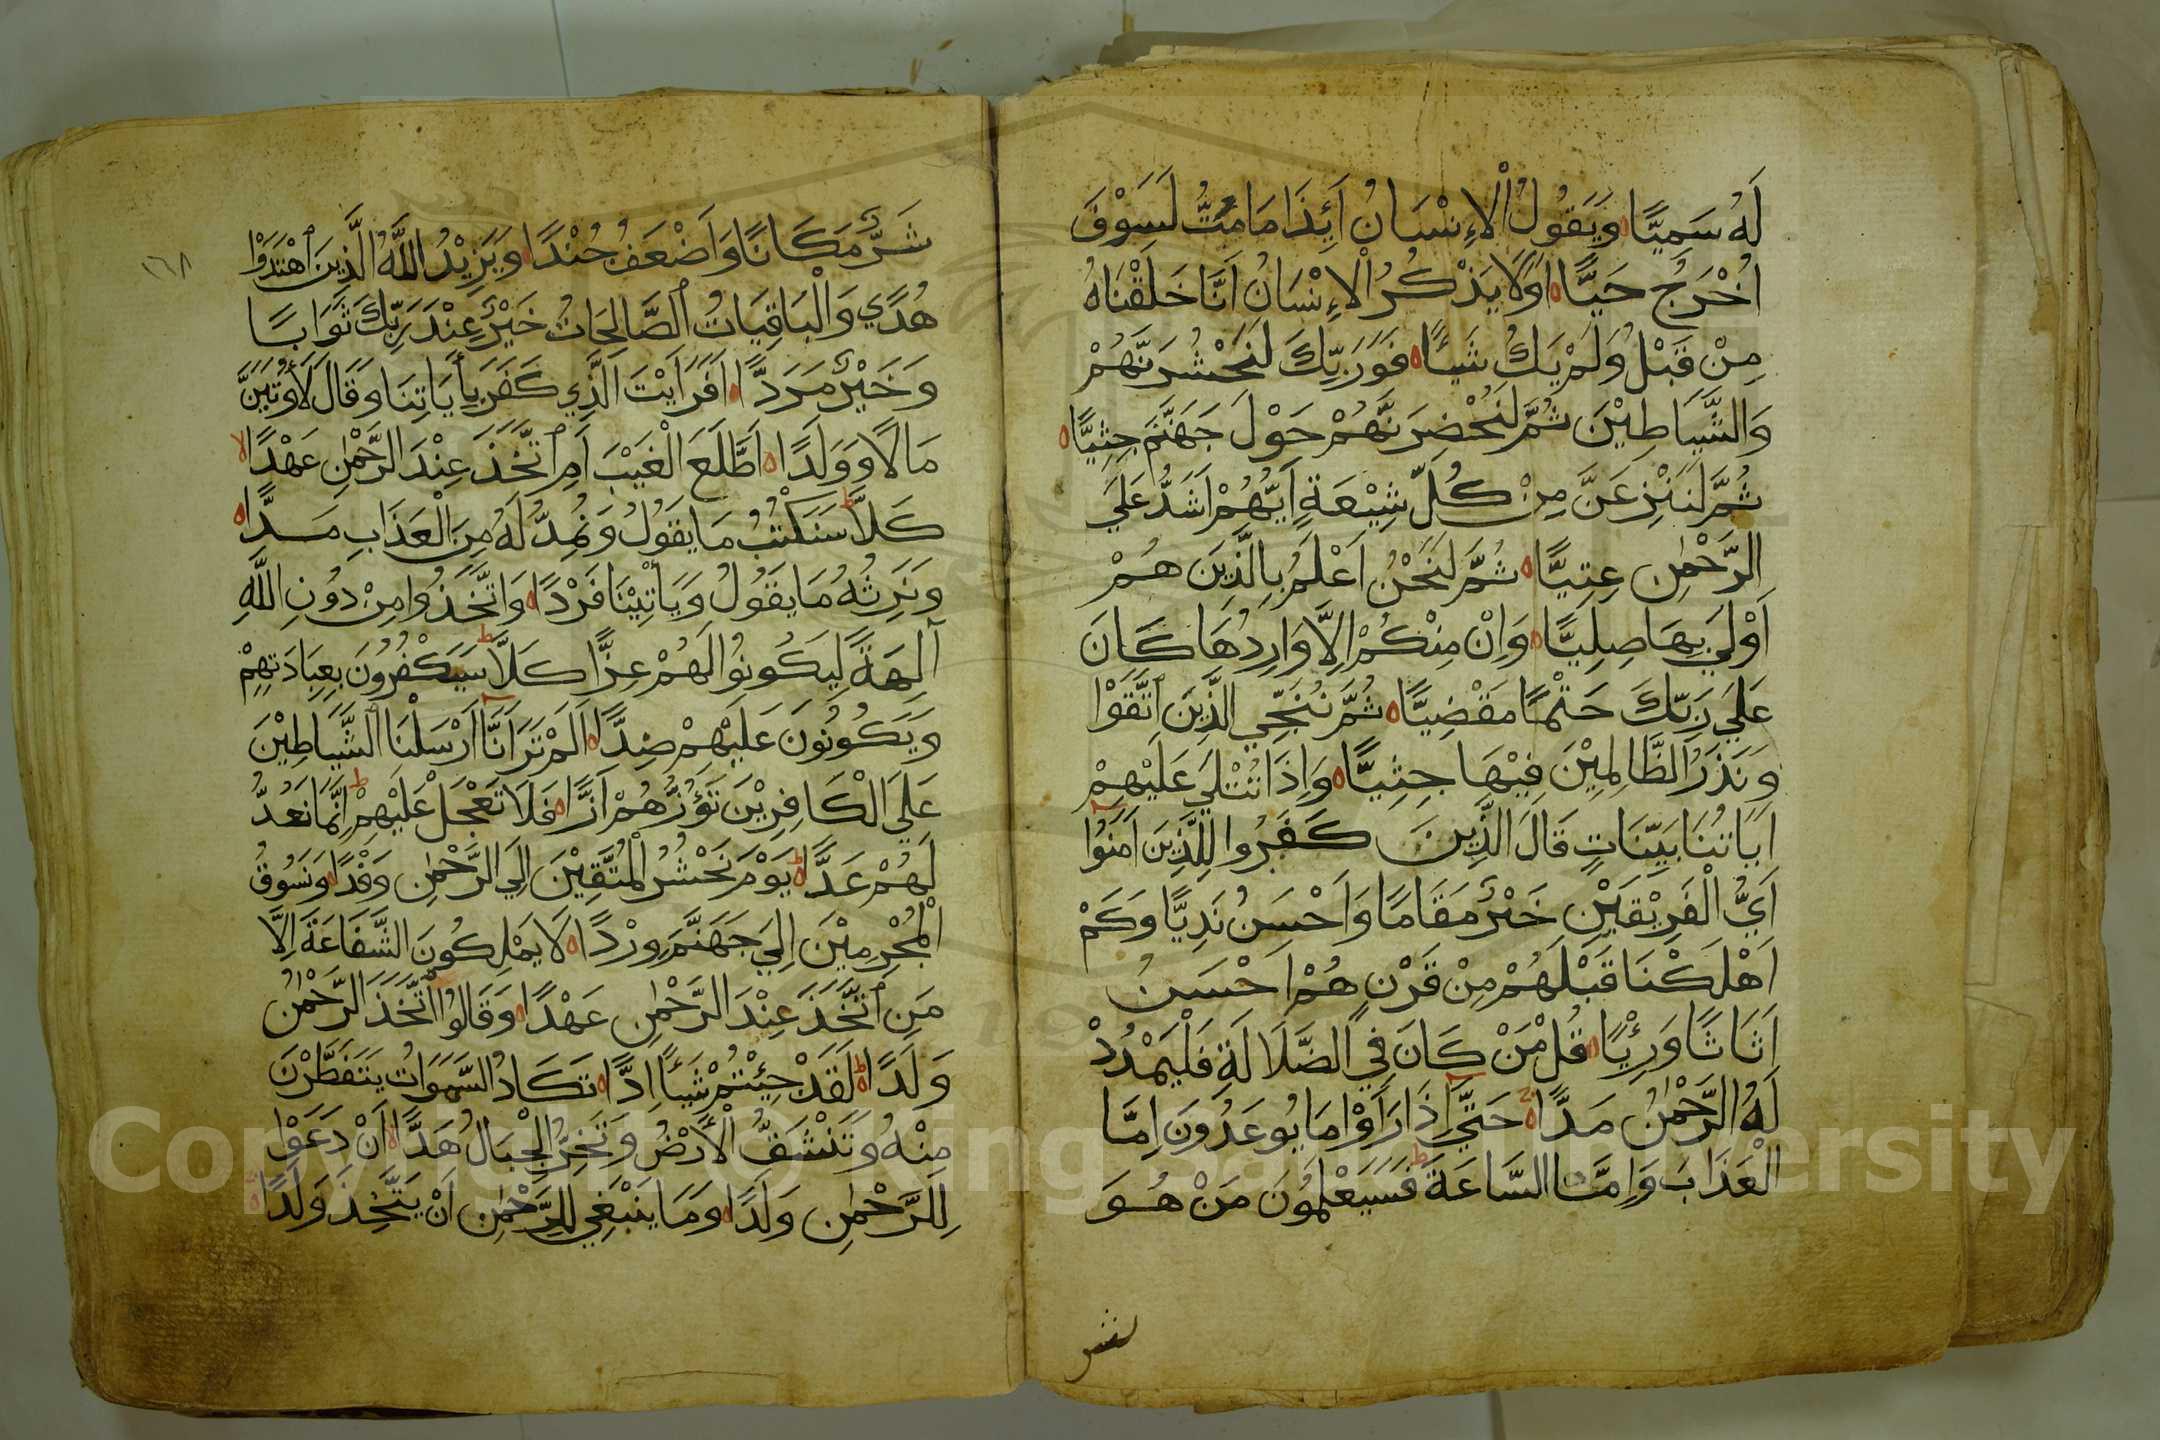 لَهُ سَمِيًّا وَيَقُولُ الْاِنْسَانُ اَئِذَا مَا مِتُّ لَسَوْفَ
اُخْرَجُ حَيًّا اَوَلَا يَذْكُرُ الْاِنْسَانُ اَنَّا خَلَقْنَاهُ
مِنْ قَبْلُ وَلَمْ يَكُ شَيْـًٔا فَوَرَبِّكَ لَنَحْشُرَنَّهُمْ
وَالشَّيَاطِيْنَ ثُمَّ لَنُحْضِرَنَّهُمْ حَوْلَ جَهَنَّمَ جِثِيًّا
ثُمَّ لَنَنْزِعَنَّ مِنْ كُلِّ شِيْعَةٍ اَيُّهُمْ اَشَدُّ عَلَي
الرَّحْمٰنِ عِتِيًّا ثُمَّ لَنَحْنُ اَعْلَمُ بِالَّذِيْنَ هُمْ
اَوْلَي بِهَا صِلِيًّا وَاِنْ مِنْكُمْ اِلَّا وَارِدُهَا كَانَ
عَلَي رَبِّكَ حَتْمًا مَقْضِيًّا ثُمَّ نُنَجِّي الَّذِيْنَ اتَّقَوْا
وَنَذَرُ الظَّالِمِيْنَ فِيْهَا جِثِيًّا وَاِذَا تُتْلَي عَلَيْهِمْ
اٰيَاتُنَا بَيِّنَاتٍ قَالَ الَّذِيْنَ كَفَرُوا لِلَّذِيْنَ اٰمَنُوْا
اَيُّ الْفَرِيْقَيْنِ خَيْرٌ مَقَامًا وَاَحْسَنُ نَدِيًّا وَكَمْ
اَهْلَكْنَا قَبْلَهُمْ مِنْ قَرْنٍ هُمْ اَحْسَنُ
اَثَاثًا وَرِئْيًا قُلْ مَنْ كَانَ فِي الضَّلَالَةِ فَلْيَمْدُدْ
لَهُ الرَّحْمٰنُ مَدًّا حَتَّي اِذَا رَاَوْا مَا يُوعَدُوْنَ اِمَّا
الْعَذَابَ وَاِمَّا السَّاعَةَ فَسَيَعْلَمُوْنَ مَنْ هُوَ
شر
شَرٌّ مَكَانًا وَاَضْعَفُ جُنْدًا وَيَزِيْدُ اللَّهُ الَّذِيْنَ اهْتَدَوْا
١٦٨
هُدًي وَالْبَاقِيَاتُ الصَّالِحَاتُ خَيْرٌ عِنْدَ رَبِّكَ ثَوَابًا
وَخَيْرٌ مَرَدًّا اَفَرَاَيْتَ الَّذِي كَفَرَ بِاٰيَاتِنَا وَقَالَ لَاُوْتَيَنَّ
مَالًا وَوَلَدًا اَطَّلَعَ الْغَيْبَ اَمِ اتَّخَذَ عِنْدَ الرَّحْمٰنِ عَهْدًا لا
كَلَّا ط سَنَكْتُبُ مَا يَقُوْلُ وَنَمُدُّ لَهُ مِنَ الْعَذَابِ مَدًّا
وَنَرِثُهُ مَا يَقُوْلُ وَيَاْتِيْنَا فَرْدًا وَاتَّخَذُوا مِنْ دُوْنِ اللَّهِ
اٰلِهَةً لِيَكُونُوْا لَهُمْ عِزًّا كَلَّا ط سَيَكْفُرُوْنَ بِعِبَادَتِهِمْ
وَيَكُوْنُوْنَ عَلَيْهِمْ ضِدًّا اَلَمْ تَرَ اَنَّا اَرْسَلْنَا الشَّيَاطِيْنَ
عَلَي الْكَافِرِيْنَ تَؤُزُّهُمْ اَزًّا فَلَا تَعْجَلْ عَلَيْهِمْ ط اِنَّمَا نَعُدُّ
لَهُمْ عَدًّا ط يَوْمَ نَحْشُرُ الْمُتَّقِيْنَ اِلَي الرَّحْمٰنِ وَفْدًا وَنَسُوْقُ
الْمُجْرِمِيْنَ اِلَي جَهَنَّمَ وِرْدًا لَا يَمْلِكُوْنَ الشَّفَاعَةَ اِلَّا
مَنِ اتَّخَذَ عِنْدَ الرَّحْمٰنِ عَهْدًا وَقَالُوا اتَّخَذَ الرَّحْمٰنُ
وَلَدًا ط لَقَدْ جِئْتُمْ شَيْـًٔا اِدًّا تَكَادُ السَّمَوَاتُ يَتَفَطَّرْنَ
مِنْهُ وَتَنْشَقُّ الْاَرْضُ وَتَخِرُّ الْجِبَالُ هَدًّا اَنْ دَعَوْا
لِلرَّحْمٰنِ وَلَدًا وَمَا يَنْبَغِي لِلرَّحْمٰنِ اَنْ يَتَّخِذَ وَلَدًا
Copyright © King Saud University